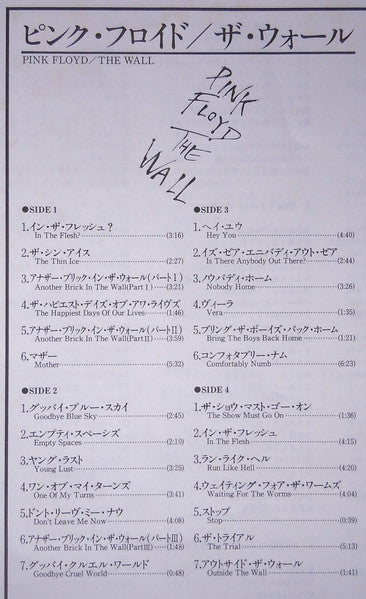 ピンク・フロイド／ザ・ウォール
PINK FLOYD/THE WALL
PINK
FLOYD
THE
WALL
●SIDE 1
1.イン・ザ・フレッシュ？
In The Flesh? (3:16)
2.ザ・シン・アイス
The Thin Ice (2:27)
3.アナザー・ブリック・イン・ザ・ウォール(パートⅠ)
Another Brick In The Wall(PartⅠ) (3:21)
4.ザ・ハピエスト・デイズ・オブ・アワ・ライヴズ
The Happiest Days Of Our Lives (1:46)
5.アナザー・ブリック・イン・ザ・ウォール(パートⅡ)
Another Brick In The Wall(PartⅡ) (3:59)
6.マザー
Mother (5:32)
●SIDE 2
1.グッバイ・ブルー・スカイ
Goodbye Blue Sky (2:45)
2.エンプティ・スペーシズ
Empty Spaces (2:10)
3.ヤング・ラスト
Young Lust (3:25)
4.ワン・オブ・マイ・ターンズ
One Of My Turns (3:41)
5.ドント・リーヴ・ミー・ナウ
Don't Leave Me Now (4:08)
6.アナザー・ブリック・イン・ザ・ウォール(パートⅢ)
Another Brick In The Wall(PartⅢ) (1:48)
7.グッバイ・クルエル・ワールド
Goodbye Cruel World (0:48)
●SIDE 3
1.ヘイ・ユウ
Hey You (4:40)
2.イズ・ゼア・エニバディ・アウト・ゼア
Is There Anybody Out There? (2:44)
3.ノウバディ・ホーム
Nobody Home (3:26)
4.ヴィーラ
Vera (1:35)
5.ブリング・ザ・ボーイズ・バック・ホーム
Bring The Boys Back Home (1:21)
6.コンフォタブリー・ナム
Comfortably Numb (6:23)
●SIDE 4
1.ザ・ショウ・マスト・ゴー・オン
The Show Must Go On (1:36)
2.イン・ザ・フレッシュ
In The Flesh (4:15)
3.ラン・ライク・ヘル
Run Like Hell (4:20)
4.ウェイティング・フォア・ザ・ワームズ
Waiting For The Worms (4:04)
5.ストップ
Stop (0:39)
6.ザ・トライアル
The Trial (5:13)
7.アウトサイド・ザ・ウォール
Outside The Wall (1:41)